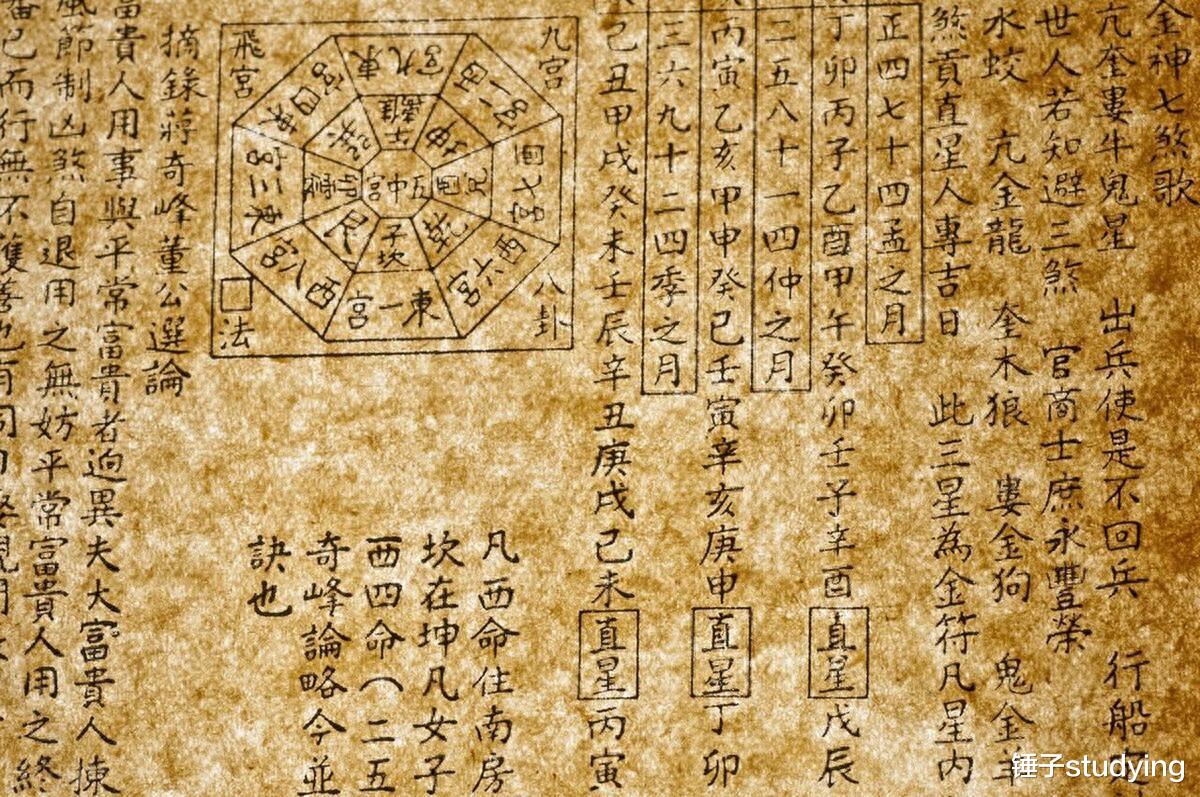 金神七煞歌
亢奎婁牛鬼星 出兵使是不回兵 行船
世人若知避三煞 官商士庶永豐榮
水蛟 亢金龍 奎木狼 婁金狗 鬼金羊
煞貢直星人專吉日 此三星為金符凡星内
正四七十四孟之月
丁卯丙子乙酉甲午癸卯壬子辛酉 直星 戊辰
二五八十一四仲之月
丙寅乙亥甲申癸巳壬寅辛亥庚申 直星 丁卯
三六九十二四季之月
己丑甲戌癸未壬辰辛丑庚戌己未 直星 丙寅
九宮
八卦
飛宮
□法
東九宮
離
坤
西七宮
兌
酉
西六宮
乾
東一宮
坎
子
西八宮
艮
東三宮
震
卯
東四宮
巽
五中宮
凡西命住南房
坎在坤凡女子
西四命（二五
奇峰論略今並
訣也
摘錄蔣奇峰董公選論
富貴人用事與平常富貴者迥異夫大富貴人揀
風節制凶煞自退用之無妨平常富貴人用之終
已而行無不獲善也
锤子studying